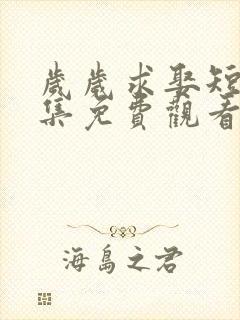 歲歲求娶短
集免費觀看
海島之君